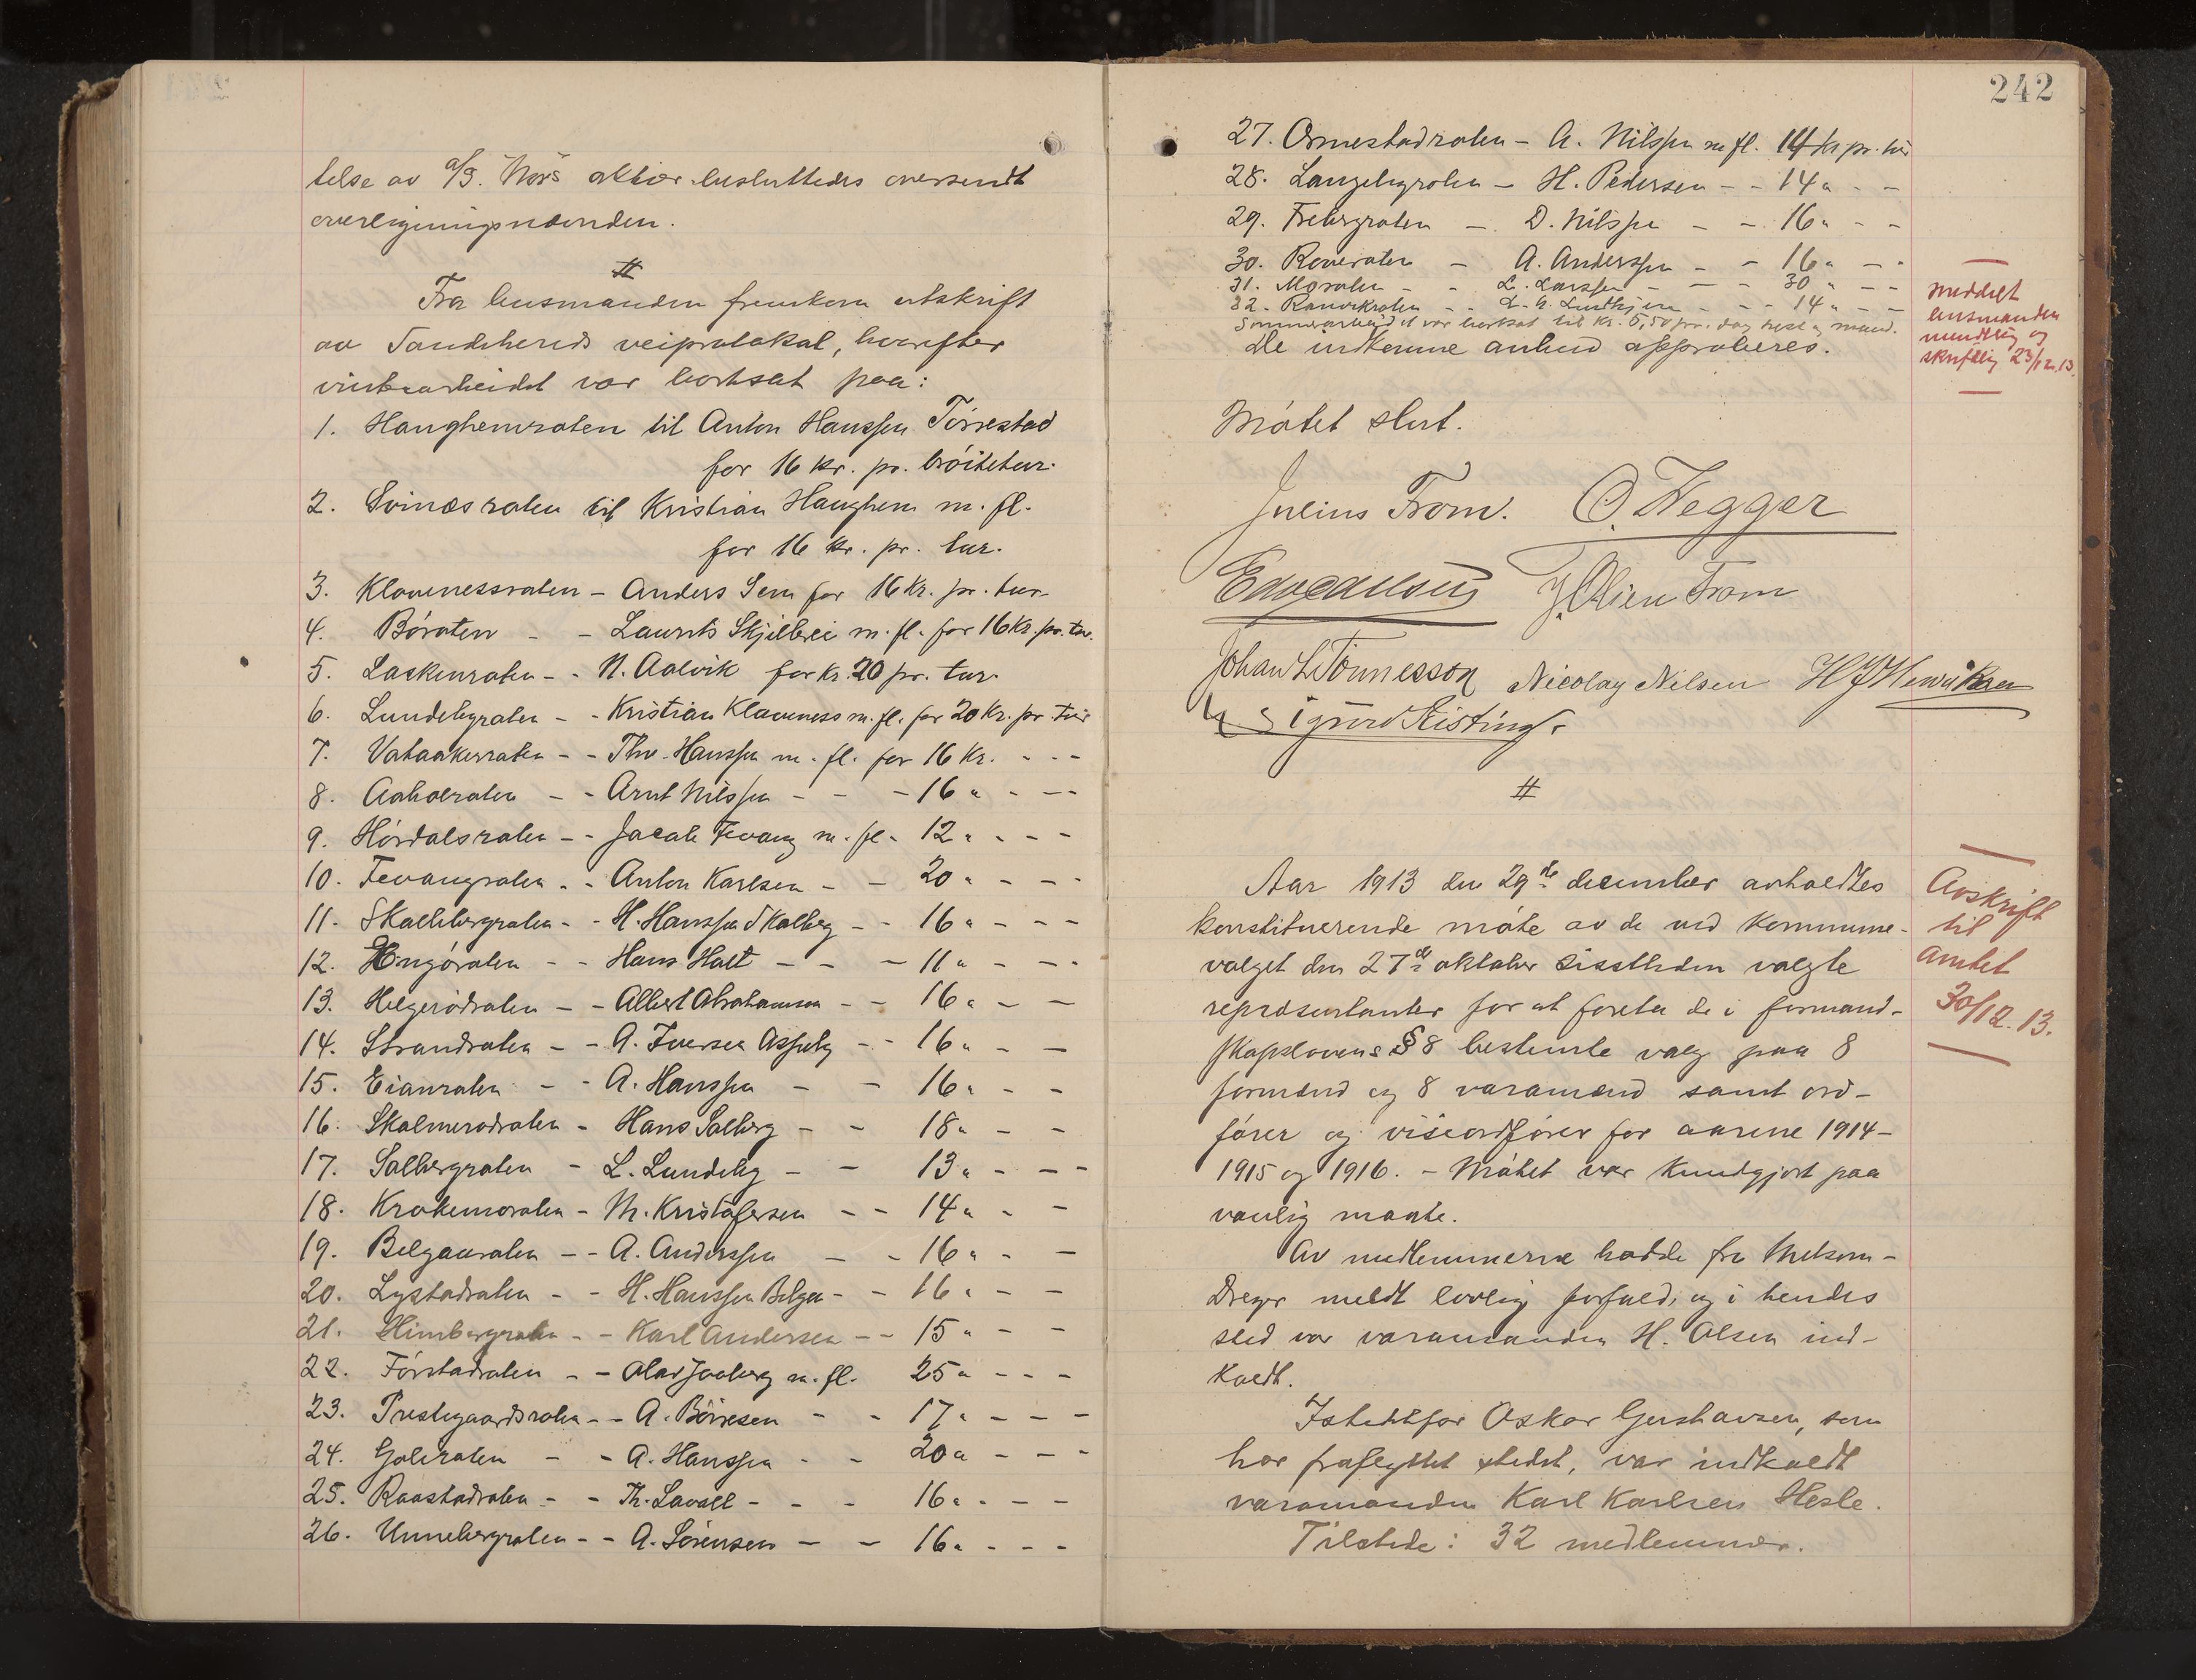 telse av A/S. Nors aktier besluttedes oversendt
overligningsnævnden.
#
Fra lensmanden fremkom utskrift
av Sandeherred veiprotokol, hvorefter
vinterarbeidet var bortsat paa:
1. Haughemroten til Anton Hanssen Törrestad
for 16 kr. pr. bröitetur.
2. Svinæsroten til Kristian Haughem m. fl.
for 16 kr. pr. tur.
3. Klavenessroten - Anders Sem for 16 kr. pr. tur
4. Böroten - - Laurits Skjelbrei m. fl. for 16 Kr. pr. tur.
5. Laskenroten - - N. Aalvik for kr. 20 pr. tur.
6. Lundebyroten - - Kristian Klaveness m. fl. for 20 Kr. pr. tur
7. Vataakerroten - - Thv. Hanssen m. fl. for 16 Kr. - - -
8. Aaholroten - - Arnt Nilssen - - - 16 " - - -
9. Hördalsroten - - Jacob Fevang m. fl. 12 " - - -
10. Fevangroten - - Anton Karlsen - - 20 " - - -
11. Skallebergroten - - H. Hanssen Skalleberg - - 16 " - - -
12. Engöroten - - Hans Holt - - - 11 " - - -
13. Helgerödroten - - Albert Abrahamsen - - 16 " - -
14. Strandroten - - A. Iversen Asseby - - 16 " - -
15. Eianroten - - A. Hanssen - - 16 " - -
16. Skolmerödroten - Hans Solberg - - 18 " - -
17. Solbergroten - L. Lundeby - - 13 " - - -
18. Krokemoroten - M. Kristofersen - - 14 " - -
19. Belganroten - - A. Anderssen - - 16 " - -
20. Lystadroten - - H. Hanssen Belgen - - 16 " - -
21. Himbergroten - - Karl Andersen - - 15 " - -
22. Förstadroten - - Olav Joaberg m. fl. 25 " - - -
23. Prestegaardsroten - - A. Börresen - - 17 " - - -
24. Goliroten - - A. Hanssen - - 20 " - - -
25. Raastadroten - - Th. Lavoll - - - 16 " - - -
26. Unnebergroten - - A. Sörensen - - 16 " - - -
242
27. Ormestadroten - A. Nilssen m fl. 14 kr pr. tur
28. Langebyroten - H. Pedersen - - 14 " - -
29. Frebergroten - D. Nilssen - - 16 " - -
30. Roveroten - A. Anderssen - - 16 " - -
31. Moroten - - L. Larssen - - - 30 " - -
32. Ranvikroten - - - - - 14 " - -
Sommerarbeidet var bortsat til kr. 5,50 pr. dag hest og mand.
De indkomne anbud approberes.
meddelt
lensmanden
mundtlig og
skriftlig 23/12. 13.
Mötet slut.
Julius From. O. Hegger
J. Olsen From
Johan L. Tönnesson Nicolay Nilsen H J Henriksen
Sigurd Risting.
#
Aar 1913 den 29de december avholdtes
konstituerende möte av de ved Kommune-
valget den 27de oktober sisstleden valgte
repræsentanter for at foreta de i formand-
skapslovens § 8 bestemte valg paa 8
formænd og 8 varamænd samt ord-
förer og viseordförer for aarene 1914-
1915 og 1916. - Mötet var kundgjort paa
vanlig maate.
Avskrift
til
amtet
30/12. 13.
Av medlemmerne hadde fru Melsom-
Dreyer meldt lovlig forfald, og i hendes
sted var varamanden H. Olsen ind-
kaldt.
Istedetfor Oskar Gershausen, som
har fraflyttet stedet, var indkaldt
varamanden Karl Karlsen Hesle.
Tilstede: 32 medlemmer.